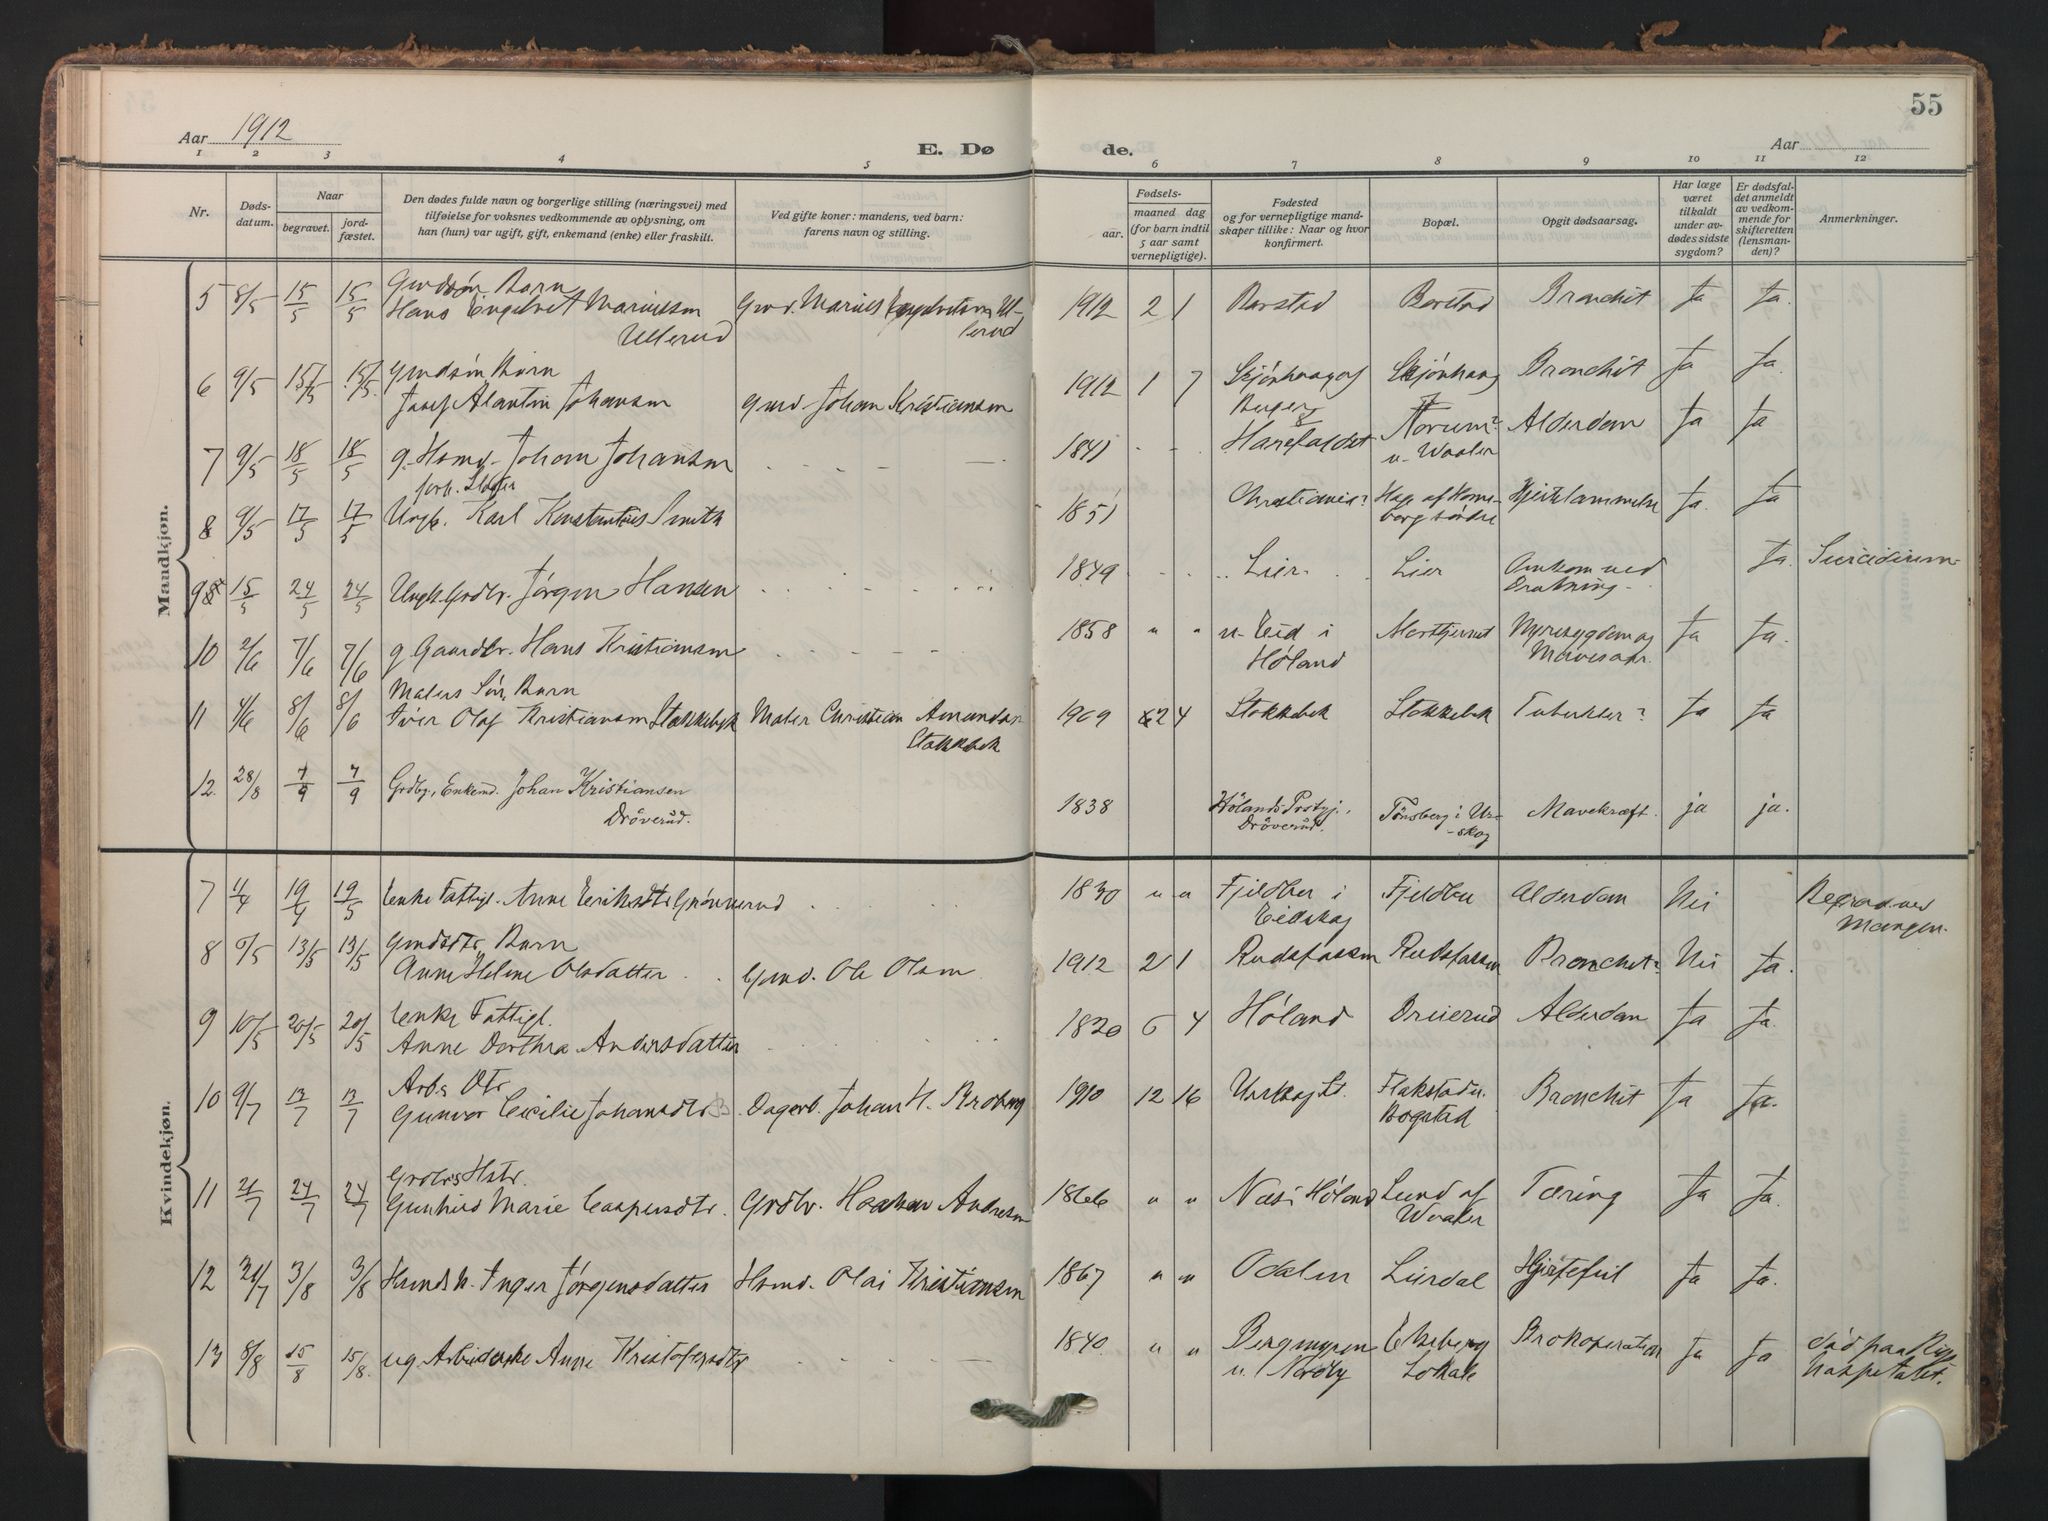 55
Aar 1912
E. Dø
de.
Aar
1 2 3 4 5 6 7 8 9 10 11 12
Nr.
Døds-
datum.
Naar
begravet.
jord-
fæstet.
Den dødes fulde navn og borgerlige stilling (næringsvei) med
tilføielse for voksnes vedkommende av oplysning, om
han (hun) var ugift, gift, enkemand (enke) eller fraskilt.
Ved gifte koner: mandens, ved barn:
farens navn og stilling.
Fødsels-
aar.
maaned dag
(for barn indtil
5 aar samt
vernepligtige).
Fødested
og for vernepligtige mand-
skaper tillike: Naar og hvor
konfirmert.
Bopæl.
Opgit dødsaarsag.
Har læge
været
tilkaldt
under av-
dødes sidste
sygdom?
Er dødsfal-
det anmeldt
av vedkom-
mende for
skifteretten
(lensman-
den)?
Anmerkninger.
Mandkjøn.
5 8/5 15/5 15/5 Hans Engelvet Mariussen Ullerud 1912 2 1 Barstad Barstad Bronchit Ja Ja.
6 9/5 15/5 15/5 Barn Johansen Johan Kristiansen 1912 1 7 Skjønhaug Bronchit Ja Ja.
7 9/5 18/5 18/5 g. Hsmd. Johan Johansen 1841 - - Harefaldet Norum? u. Waaler Alderdom Ja Ja
8 9/5 17/5 17/5 Ungk. Karl Konstantius Smith 1851 Christiania? Hjertelammelse Ja. Ja
9 15/5 24/5 24/5 Ungk. Grdbr. Jørgen Hansen 1849 Lier Lier Omkom ved Drukning Ja. Suicidium
10 2/6 7/6 7/6 g Gaardbr. Hans Kristiansen 1858 " " u. Eid i Høland Nyresygdom og Mavesaar. Ja Ja.
11 4/6 8/6 8/6 Malers Søn, Barn
Iver Olaf Kristiansen Stokkebek Maler Christian Amundsen Stokkebek 1909 2 4 Stokkebek Stokkebek Tuberkler? Ja Ja
12. 28/8 7/9 7/9 Grdbr., Enkemd. Johan Kristiansen
Dröverud. 1838 Hölands Prstgj., Dröverud. Tönsberg i Ur-
-skog Mavekræft. ja ja.
Kvindekjøn.
7 11/4 19/4 19/5 Enke Fattigl. Anne Eriksdtr Grønnerud 1830 " " Fjeldber i Eidskog Alderdom Nei Begravd ved Mangen.
8 5/5 13/5 13/5 Barn
Anne Helene Olsdatter Ole Olsen 1912 2 1 Rudsfossen Rudsfossen Bronchit? Nei Ja.
9 10/5 20/5 20/5 Enke Fattigl.
Anne Dorthea Andersdatter 1820 6 4 Høland Dreierud Alderdom Ja Ja.
10 9/7 13/7 13/7 Arb. Dtr
Gunvor Cecilie Johansdtr Dagarb. Johan H. Broberg 1910 12 16 Flakstad u. Bogstad Bronchit Ja Ja.
11 24/7 24/7
Gunhild Marie Caspersdtr. Grdbr. Haakon Andresen 1866 " " Næs i Høland Lund af Waaler Tæring Ja Ja.
12 3/8 3/8 Inger Jørgensdatter Hsmd. Olai Kristiansen 1867 " " Odalen Lierdal Hjertefeil Ja Ja.
13 8/8 15/8 15/8. ug. Arbeiderske Anne Kristofersdtr 1840 " " Bergmyren u. Nordby Ekeberg Lokale Brokoperation Ja Ja død paa Rigs
hospitalet.